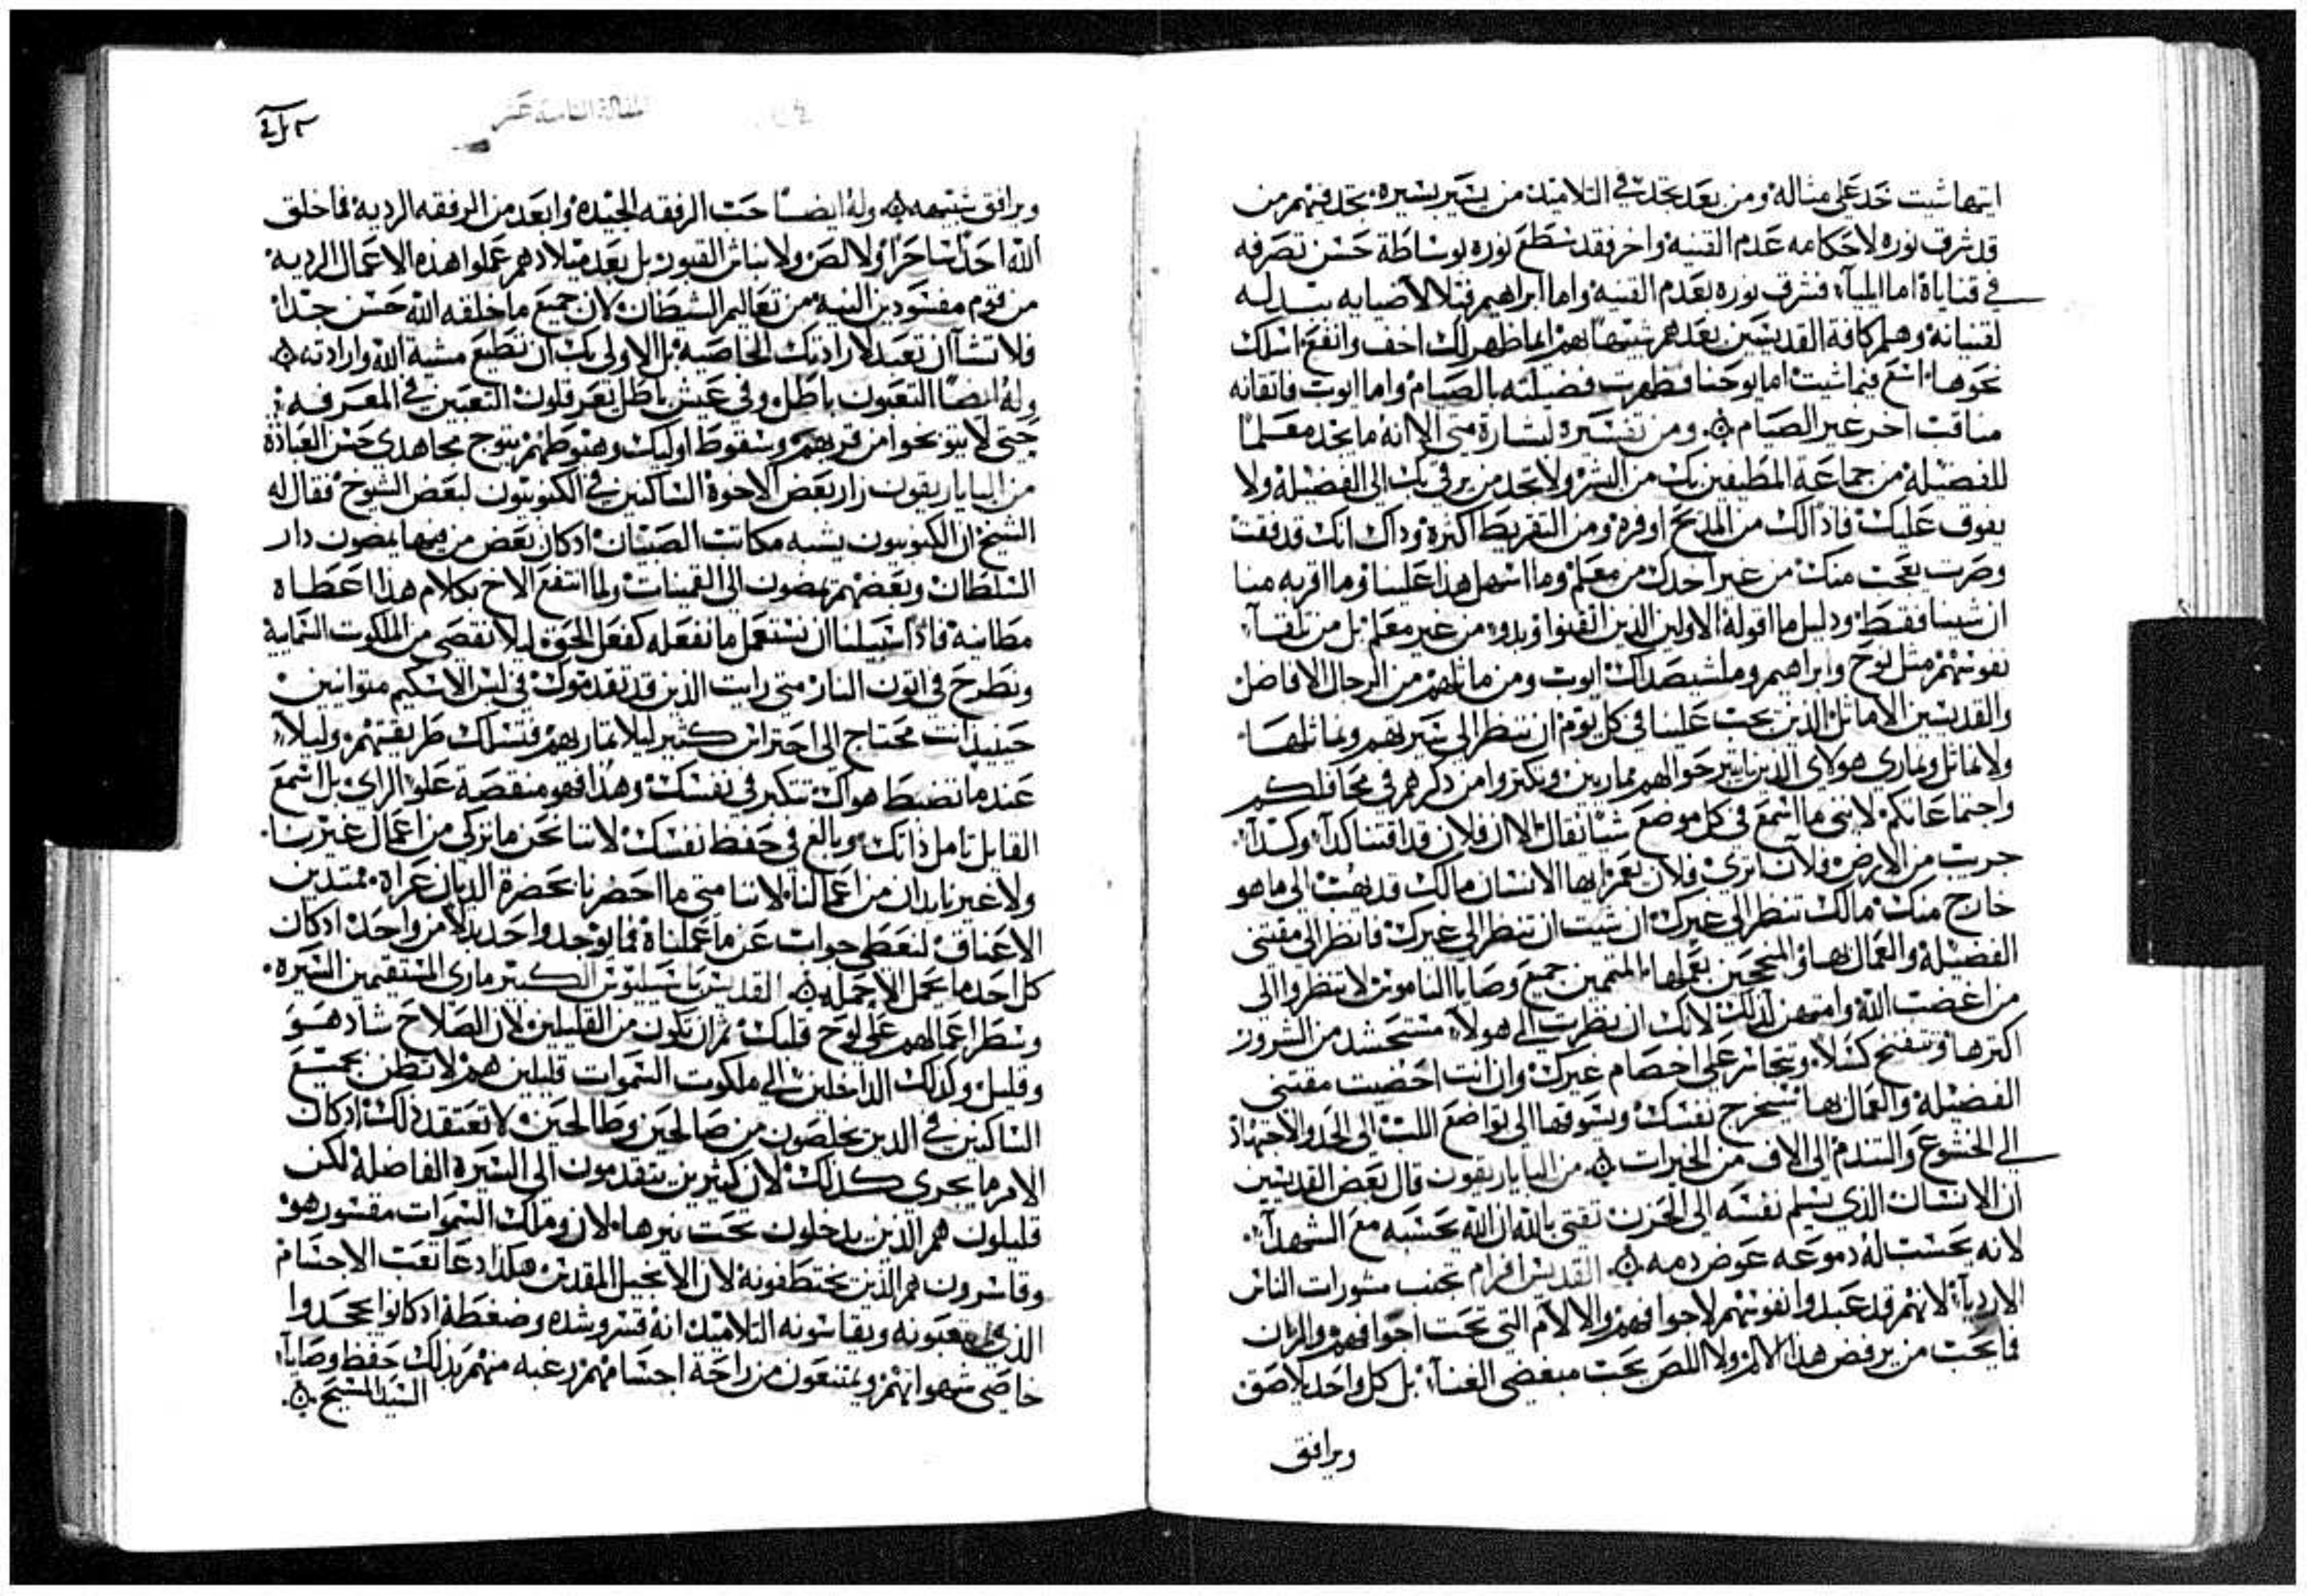 ايتها شيت خد على مثاله ومن بعد تجد في التلاميذ من يسير يسيره تجد فيهم من
قد شرق نوره لاحكامه عدم القنيه واخر فقد سطع نوره بوساطة حسن تصرفه
في قناياة اما ايليآ فشرق نوره بعدم القنيه واما ابراهيم فبالاضيافه
لقنيانه وهلم كافة القديسين بعدهم ايما ظهر لك اخف وانفع اسلك
نحوها اتبع فيما شيت اما يوحنا فظهرت فضيلته بالصيام واما ايوب فاتقانه
مناقب اخر غير الصيام ومن تفسيره لبشارة متى الا انه ما يجد معلما
للفضيله من جماعة المطيفين بك من البشر ولا تجد من يرقى بك الى الفضيله ولا
يفوق عليك فاذا لك من المديح اوفره ومن التقريظ اكثره وذاك انك قد فقت
وصرت تعجب منك من غير اخدك من معلم وما اسهل هذا علينا وما اقربه منا
ان شينا فقط ودليل ما اقوله الاولين الذين اقتنوا من غير معلم بل من تلقآ
نفوسهم مثل نوح وابراهيم وملشيصداك ايوب ومن ماثلهم من الرجال الافاضل
والقديسين الاماثل الذين يجب علينا في كل يوم ان ننظر الى سيرتهم ونماثلها
ولا نماثل ونماري هولاي الذين حوالهم ممارين ويكثروا من ذكرهم في محافلكم
واجتماعاتكم لانني ما اسمع في كل موضع شيا يقال الا ان فلان قد اقتنا كدآ وكدآ
جريب من الارض فلان اثرى فلان يعمر ايها الانسان مالك قد بهت الى ما هو
خارج منك مالك تنظر الى غيرك ان شيت ان تنظر الى غيرك فانظر الى مقتني
الفضيله والعمال بها المتممين جميع وصايا الناموس لا تنظروا الى
من اغضب الله وامتهن لذلك لانك ان نظرت الى هولآ تستحشد من الشرور
اكثرها وتنتفخ كسلا وتتجاسر على اخصام غيرك وان انت احصيت مقتني
الفضيله والعمال بها تستخرج نفسك وتسوقها الى تواضع اللب الى الجد والاجتهاد
الى الخشوع والتندم الى الاف من الخيرات من الباياريقون قال بعض القديسين
ان الانسان الذي يسلم نفسه الى الحزن تقتي بالله ان الله يحسبه مع الشهدآ
لانه يحسب له دموعه عوض دمه القديس افرام تجنب مشورات الناس
الارديآ لانهم قد عبدوا نفوسهم لاجوافهم والالام التي تحت اجوافهم والزان
فما يحب من يرفض هذا الالم ولا اللص يحب مبغضي الغنآ بل كل واحد يلاصق
ويرافق
المقالة الثامنة عشر
ويرافق شبيهه وله ايضا حب الرفقه الجيده وابعد من الرفقه الرديه فما خلق
الله احد ساحرا ولا لص ولا نباش القبور بل بعد ميلادهم عملوا هذه الاعمال الرديه
من قوم مفسودين النيه من تعاليم الشيطان لان جميع ما خلقه الله حسن جدا
فلا تشا ان تعبد لارادتك الخاصيه بل الاولى بك ان تطيع مشية الله وارادته
وله ايضا التعبون باطل وفي عيش باطل تعرقلون التعبين في المعرفه
حتى لا يتوبخوا من قربهم وسقوط اوليك وهبوطهم يتوج مجاهدي حسن العبادة
من الباياريقون زار بعض الاخوة الساكنين في الكنوبيون لبعض الشيوخ فقال له
الشيخ ان الكنوبيون يشبه مكاتب الصبيان اذ كان بعض من فيها يمضون دار
السلطان وبعضهم يمضون الى القمينات ولما انتفع الاخ بكلام هذا اعطاه
مطانيه فاذا سبيلنا ان نستعمل ما نفعله كفعل الحق ليلا نقصى من الملكوت السمايية
ونطرح في اتون النار متى رايت الذين قد تقدموك في لبس الاسكيم متوانيين
حينيذ انت محتاج الى احتراس كثير ليلا تماريهم فتسلك طريقتهم وليلا
عندما تضبط هواك تتكبر في نفسك وهذا فهو منقصة علو الراي بل اسمع
القايل تامل ذاتك وبالغ في حفظ نفسك لاننا نحن ما نزكى من اعمال غيرنا
ولا غيرنا يدان من اعمالنا لاننا متى ما احضرنا بحضرة الديان عراة ممتدين
الاعناق لنعطي جواب عن ما عملناه فما يوجد واحد بدلا من واحد اذ كان
كل احد ما يحمل الا حمله القديس باسيليوس الكبير ماري المستقيمين السيره
وسطر اعمالهم على لوح قلبك ثم ان تكون من القليلين لان الصلاح شاذ هو
وقليل ولذلك الداخلين الى ملكوت السموات قليلين هم لا تظن بجميع
الساكنين في الدير يخلصون من صالحين وطالحين لا تعتقد ذلك اذ كان
الامر ما يجري كذلك لان كثيرين يتقدمون الى السيرة الفاضله لكن
قليلون هم الذين يدخلون تحت نيرها لان وملك السموات مقسور هو
وقاسرون هم الذين يختطفونه لان الانجيل المقدس هكذا دعا تعب الاجسام
الذي يتعبونه ويقاسونه التلاميذ انه قسر وشده وضغطة اذ كانوا يجحدوا
خاصي شهواتهم ويمتنعون من راحة اجسامهم رغبه منهم بذلك حفظ وصايآ
السيد المسيح